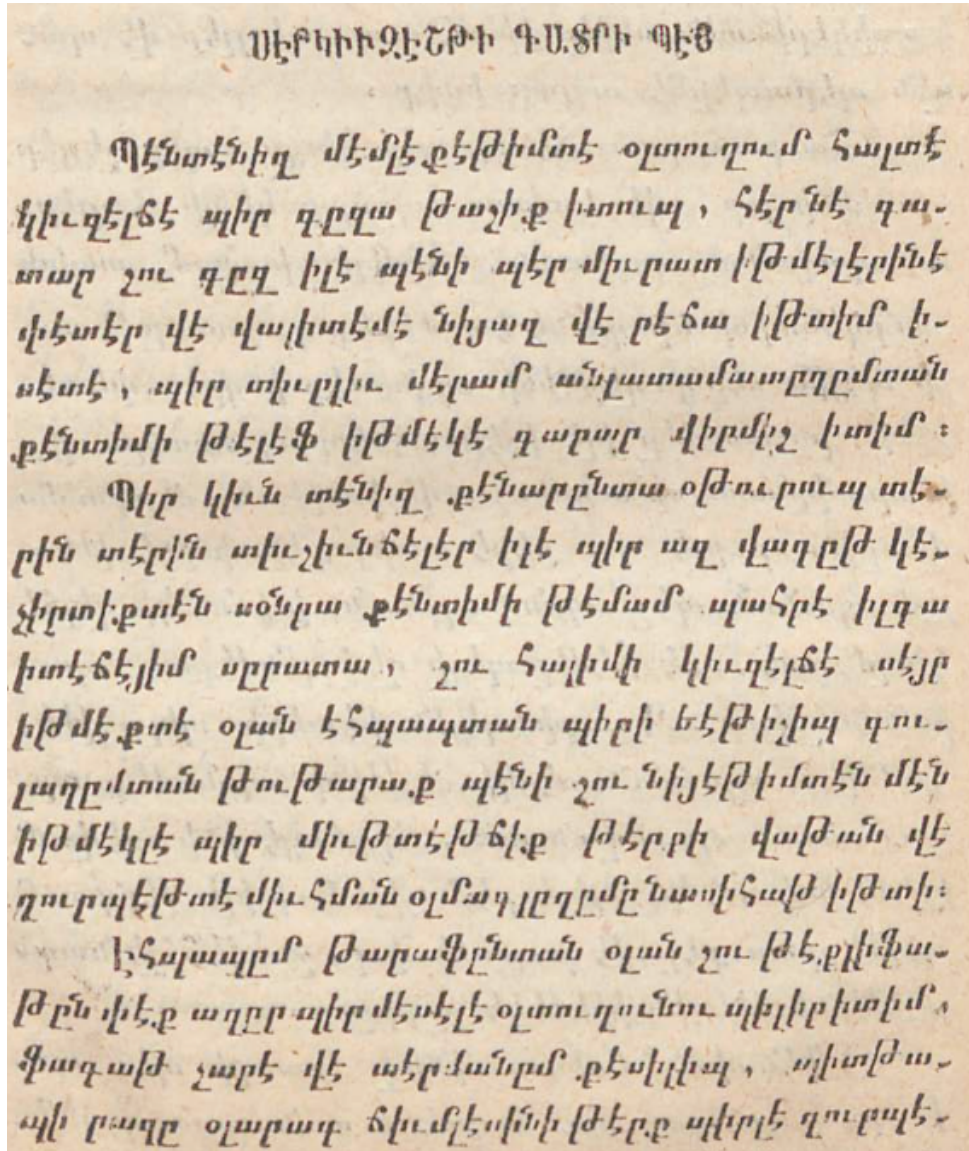 ՍԷՐԿԻՒԶԷՇԹԻ ԳԱՏՐԻ ՊԷՅ
Պէնտէնիզ մէմլէքէթիմտէ օլտուղում հալտէ
կիւզէլճէ պիր գըզա թաշիք իտուպ, հէրնէ գա֊
տար շու գըզ իլէ պէնի պէր միւրատ իթմէլէրինէ
փէտէր վէ վալիտէմէ նիյազ վէ րէճա իթտիմ ի֊
սէտէ, պիր տիւրլիւ մէրամ անլատամատըղըմտան
քէնտիմի թէլէֆ իթմէկէ գարար վիրմիշ իտիմ ։
Պիր կիւն տէնիզ քէնարընտա օթուրուպ տէ֊
րին տէրին տիւշիւնճէլէր իլէ պիր ազ վագըթ կէ֊
չիրտիքտէն սօնրա քէնտիմի թէմամ պահրէ իլգա
իտէճէյիմ սըրատա, շու հալիմի կիւզէլճէ սէյր
իթմէքտէ օլան էհպապտան պիրի եէթիշիպ գու֊
լաղըմտան թութարաք պէնի շու նիյէթիմտէն մէն
իթմէկլէ պիր միւթտէթճիք թէրքի վաթան վէ
ղուրպէթտէ միւհման օլմազլըղըմը նասիհաթ իթտի։
Էհպապըմ թարաֆընտան օլան շու թէքլիֆա֊
թըն փէք աղըր պիր մէսէլէ օլտուղունու պիլիր իտիմ,
ֆագաթ չարէ վէ տէրմանըմ քէսիլիպ, պիտթա֊
պի րազը օլարագ ճիւմլէսինի թէրք պիրլէ ղուրպէ֊